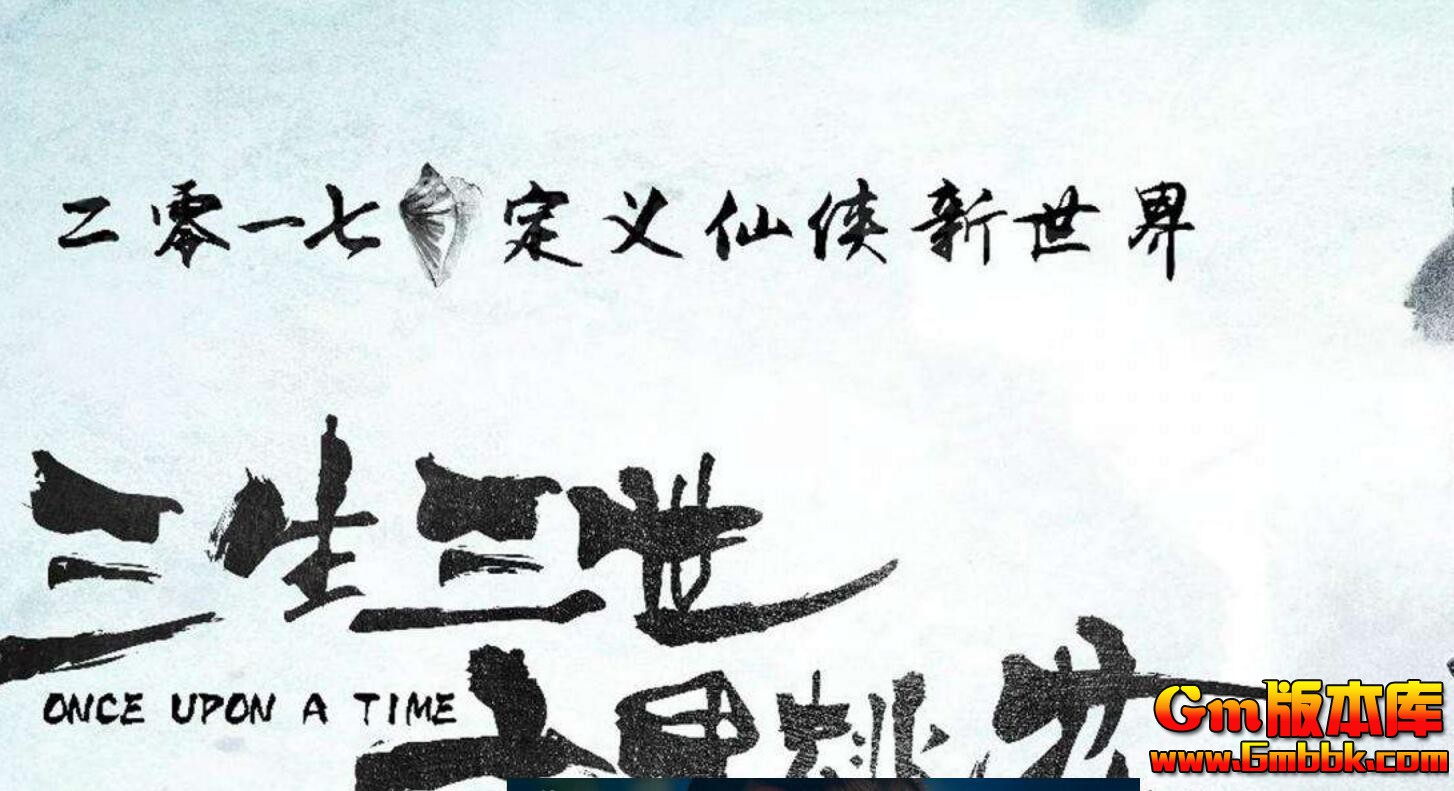 二零一七 定义仙侠新世界
三生三世
十里桃花
ONCE UPON A TIME
Gm版本库
www.Gmbbk.com